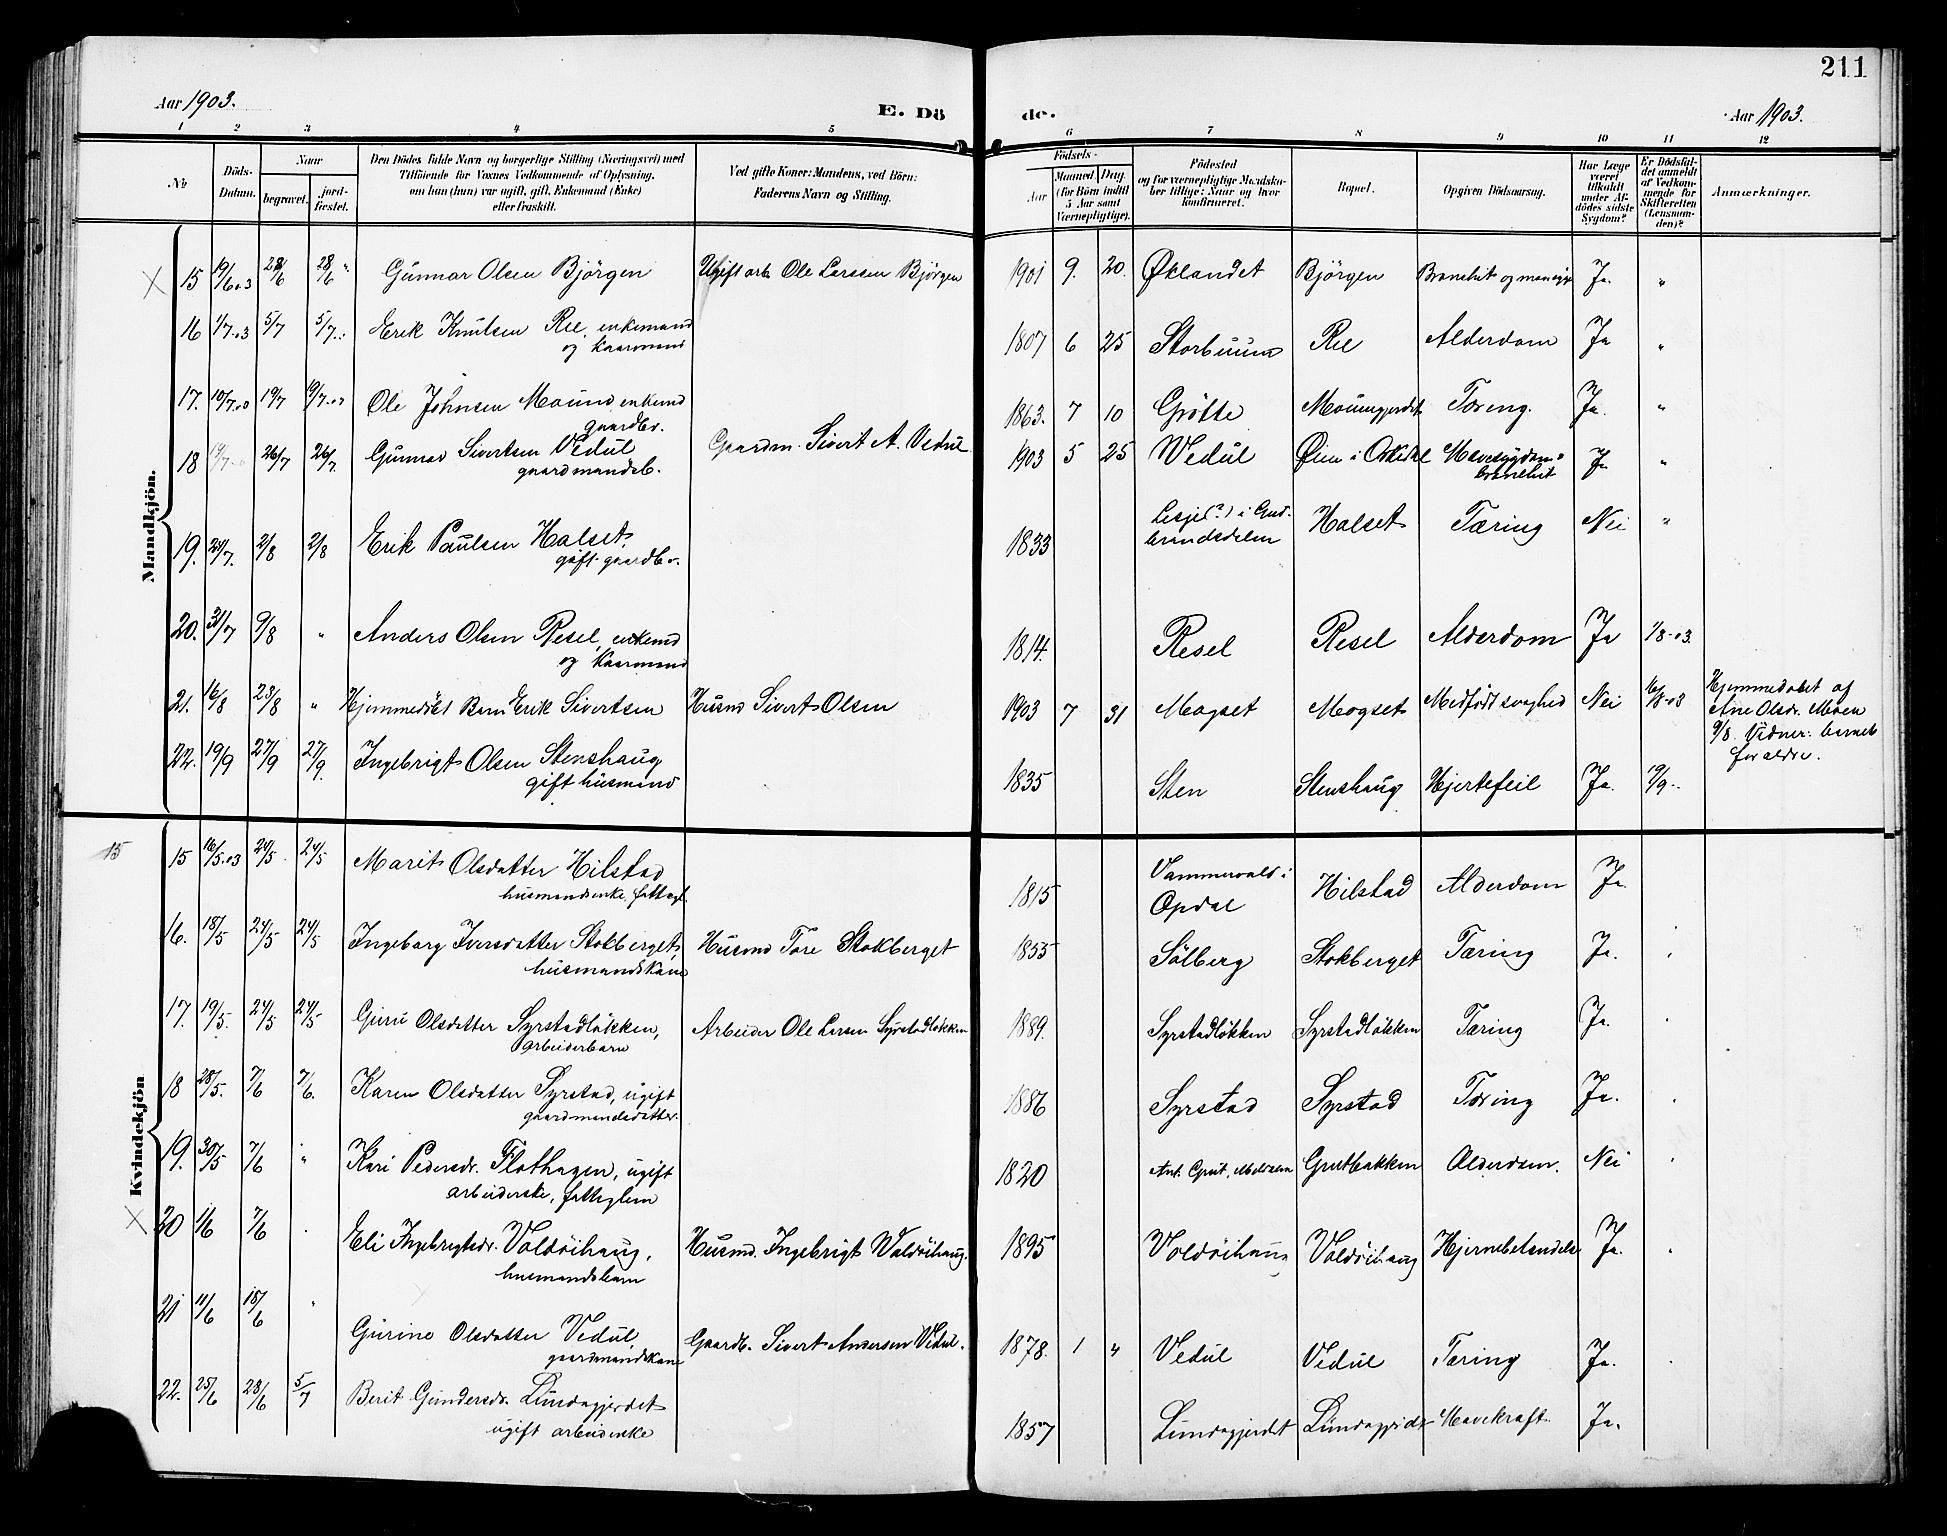 211
Aar 1903.
E. Dö
de.
Aar 1903.
1 2 3 4 5 6 7 8 9 10 11 12
No
Döds-
Datum.
Naar
begravet.
jord-
fæstet.
Den Dödes fulde Navn og borgerlige Stilling (Næringsvei) med
Tilföiende for Voxnes Vedkommende af Oplysning,
om han (hun) var ugift, gift, Enkemand (Enke)
eller fraskilt.
Ved gifte Koner: Mandens, ved Börn:
Faderens Navn og Stilling.
Födsels-
Aar
Maaned. Dag.
(for Börn indtil
5 Aar samt
Værnepligtige).
Födested
og for værnepligtige Mandska-
ber tillige: Naar og hvor
konfirmeret.
Bopæl.
Opgiven Dödsaarsag.
Har Læge
været
tilkaldt
under Af-
dödes sidste
Sygdom?
Er Dödsfal-
det anmeldt
af Vedkom-
mende for
Skifteretten
(Lensman-
den)?
Anmærkninger.
Mandkjön.
15 19/6 03 28/6 28/6 " Gunnar Olsen Bjørgen Ugift arb. Ole Larssen Bjørgen 1901 9. 20. Øklandet Bjørgen Bronchit og Ja. "
16 1/7 03 5/7 5/7 Erik Knutsen Ree, enkemand
og kaarmand 1807 6 25 Storbuum Ree Alderdom Ja "
17. 19/7 19/7 Ole Johnsen Moum enkemd
gaardbr. 1863. 7 10 Grøtte Moumgjerdet Tæring. Ja. "
18 26/7 26/7 Gunnar Sivertsen Vedul
gaardmandsb. Gaardm. Sivert A. Vedul 1903 5 25 Vedul Øien i Orkedal Mavesygdom
bronchit Ja "
19. 2/8 2/8 Erik Paulsen Halset,
gift gaardbr. 1833 Lesje(?) i Gud-
brandsdalen Halset Tæring Nei "
20. 31/7 9/8 " Anders Olsen Resel, enkemd
og kaarmand 1814. Resel Resel Alderdom Ja 1/8-03.
21. 16/8 23/8 " Hjemmedöbt Barn Erik Sivertsen Husmd Sivert Olsen 1903 7 31 Mogset Mogset Medfödt svaghed Nei 16/8-03 Hjemmedöbt af
Ane Olsdr. Moen
9/8. Vidner: barnets
forældre.
22. 19/9 27/9 27/9. Ingebrigt Olsen Stenshaug
gift husmand 1835 Sten Stenshaug Hjertefeil Ja. 19/9
Kvindekjön
15
15 16/5 03 24/5 24/5 Marit Olsdatter Hilstad
husmandsenke, fattigl. 1815 i
Opdal Hilstad Alderdom Ja.
16. 18/5 24/5 24/5 Ingeborg Iversdatter Stokberget,
husmandskone Husmd Tore Stokberget 1855 Sölberg Stokberget Tæring Ja.
17. 19/5. 24/5 24/5 Guru Olsdatter Syrstadløkken,
arbeiderbarn Arbeider Ole Larsen Syrstadløkken 1889. Syrstadløkken Syrstadløkken Tæring Ja.
18 28/5. 7/6 7/6. Karen Olsdatter Syrstad, ugift
gaardmandsdatter. 1886 Syrstad Syrstad Tæring Ja.
19. 30/5 7/6 " Kari Pedersdr. Flothagen, ugift
arbeiderske, fattiglem 1820 Grutbakken Alderdom. Nei
20 1/6 7/6 Eli Ingebrigtsdr. Voldöihaug,
husmandsbarn Husmd. Ingebrigt Voldöihaug. 1895 Voldöihaug Voldöihaug Hjernebetændelse Ja.
21 11/6 18/6 " Gurine Olsdatter Vedul,
gaardmandskone Gaardb. Sivert Andersen Vedul. 1878. 1 4 Vedul Vedul Tæring Ja.
22. 25/6 28/6 5/7 Berit Gundersdr. Lundagjerdet
ugift arbeiderske 1857 Lundagjerdet Lundagjerdet Mavekræft. Ja.